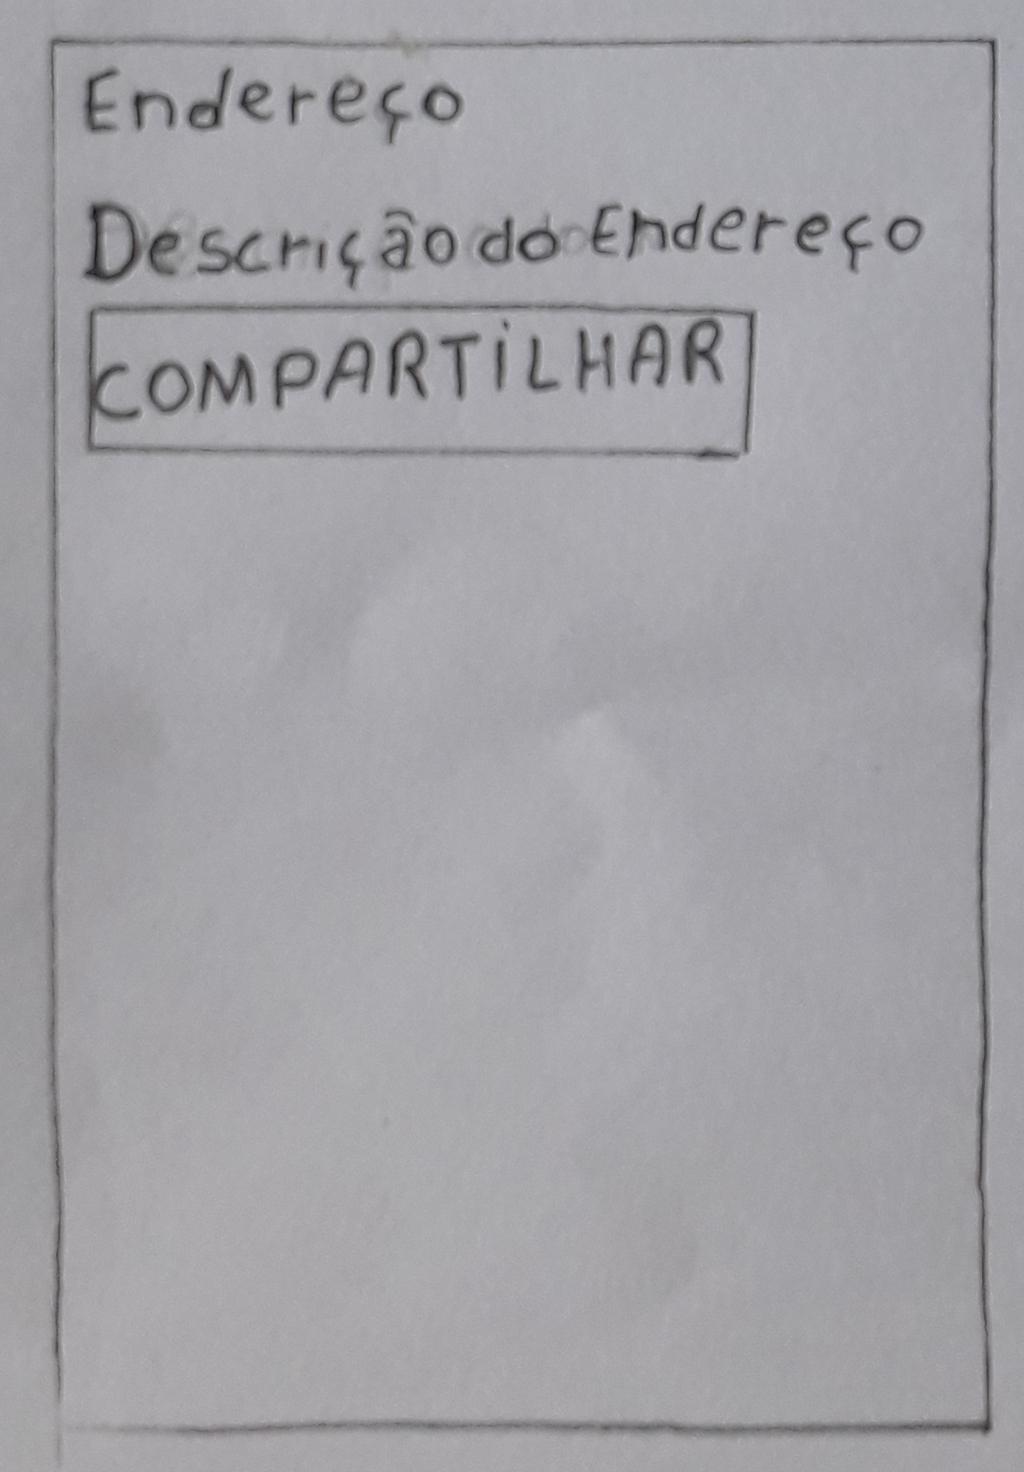 Endereço
Descrição do Endereço
COMPARTiLHAR